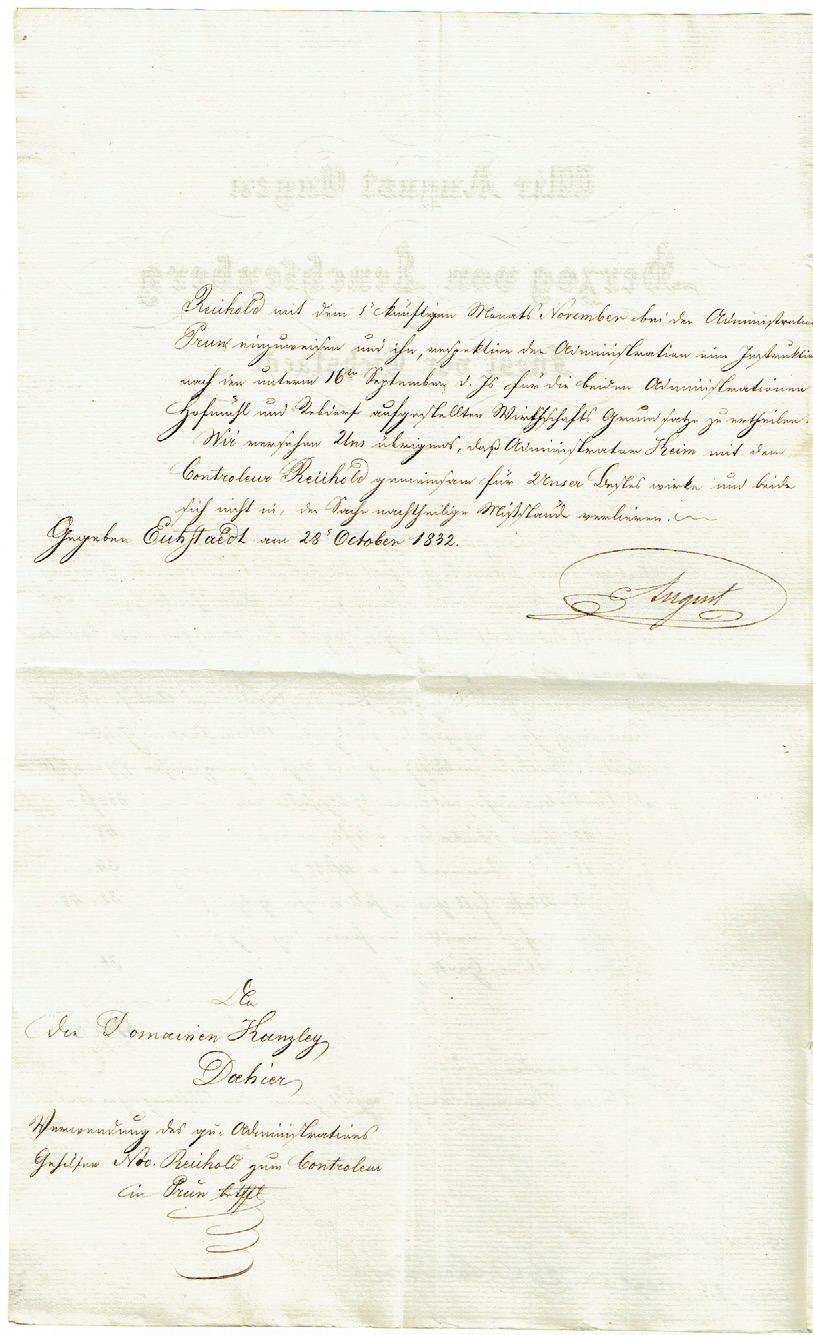 Reiihold mit dem 1ten künftigen Monats November bei der Administration
Prun einzuweisen und ihn, respektive der Administration eine Instruktion
nach den unterm 16ten September d. Js für die beiden Administrationen
Hofmühl und Rebdorf aufgestellten Wirthschafts Grundsatze zu ertheilen.
Wir versehen Uns übrigens, daß Administrator Keim mit dem
Controleur Reiihold gemeinsam für Unser Bestes wirke und beide
sich nicht in, der Sache nachtheilige Mißstände verlieren.
Gegeben Eichstaedt am 28t October 1832.
August
An
die Domainen Kanzley
Dahier
Verwendung des qu. Administrations
Gehilfen Nic. Reiihold zum Controleur
in Prun betfft